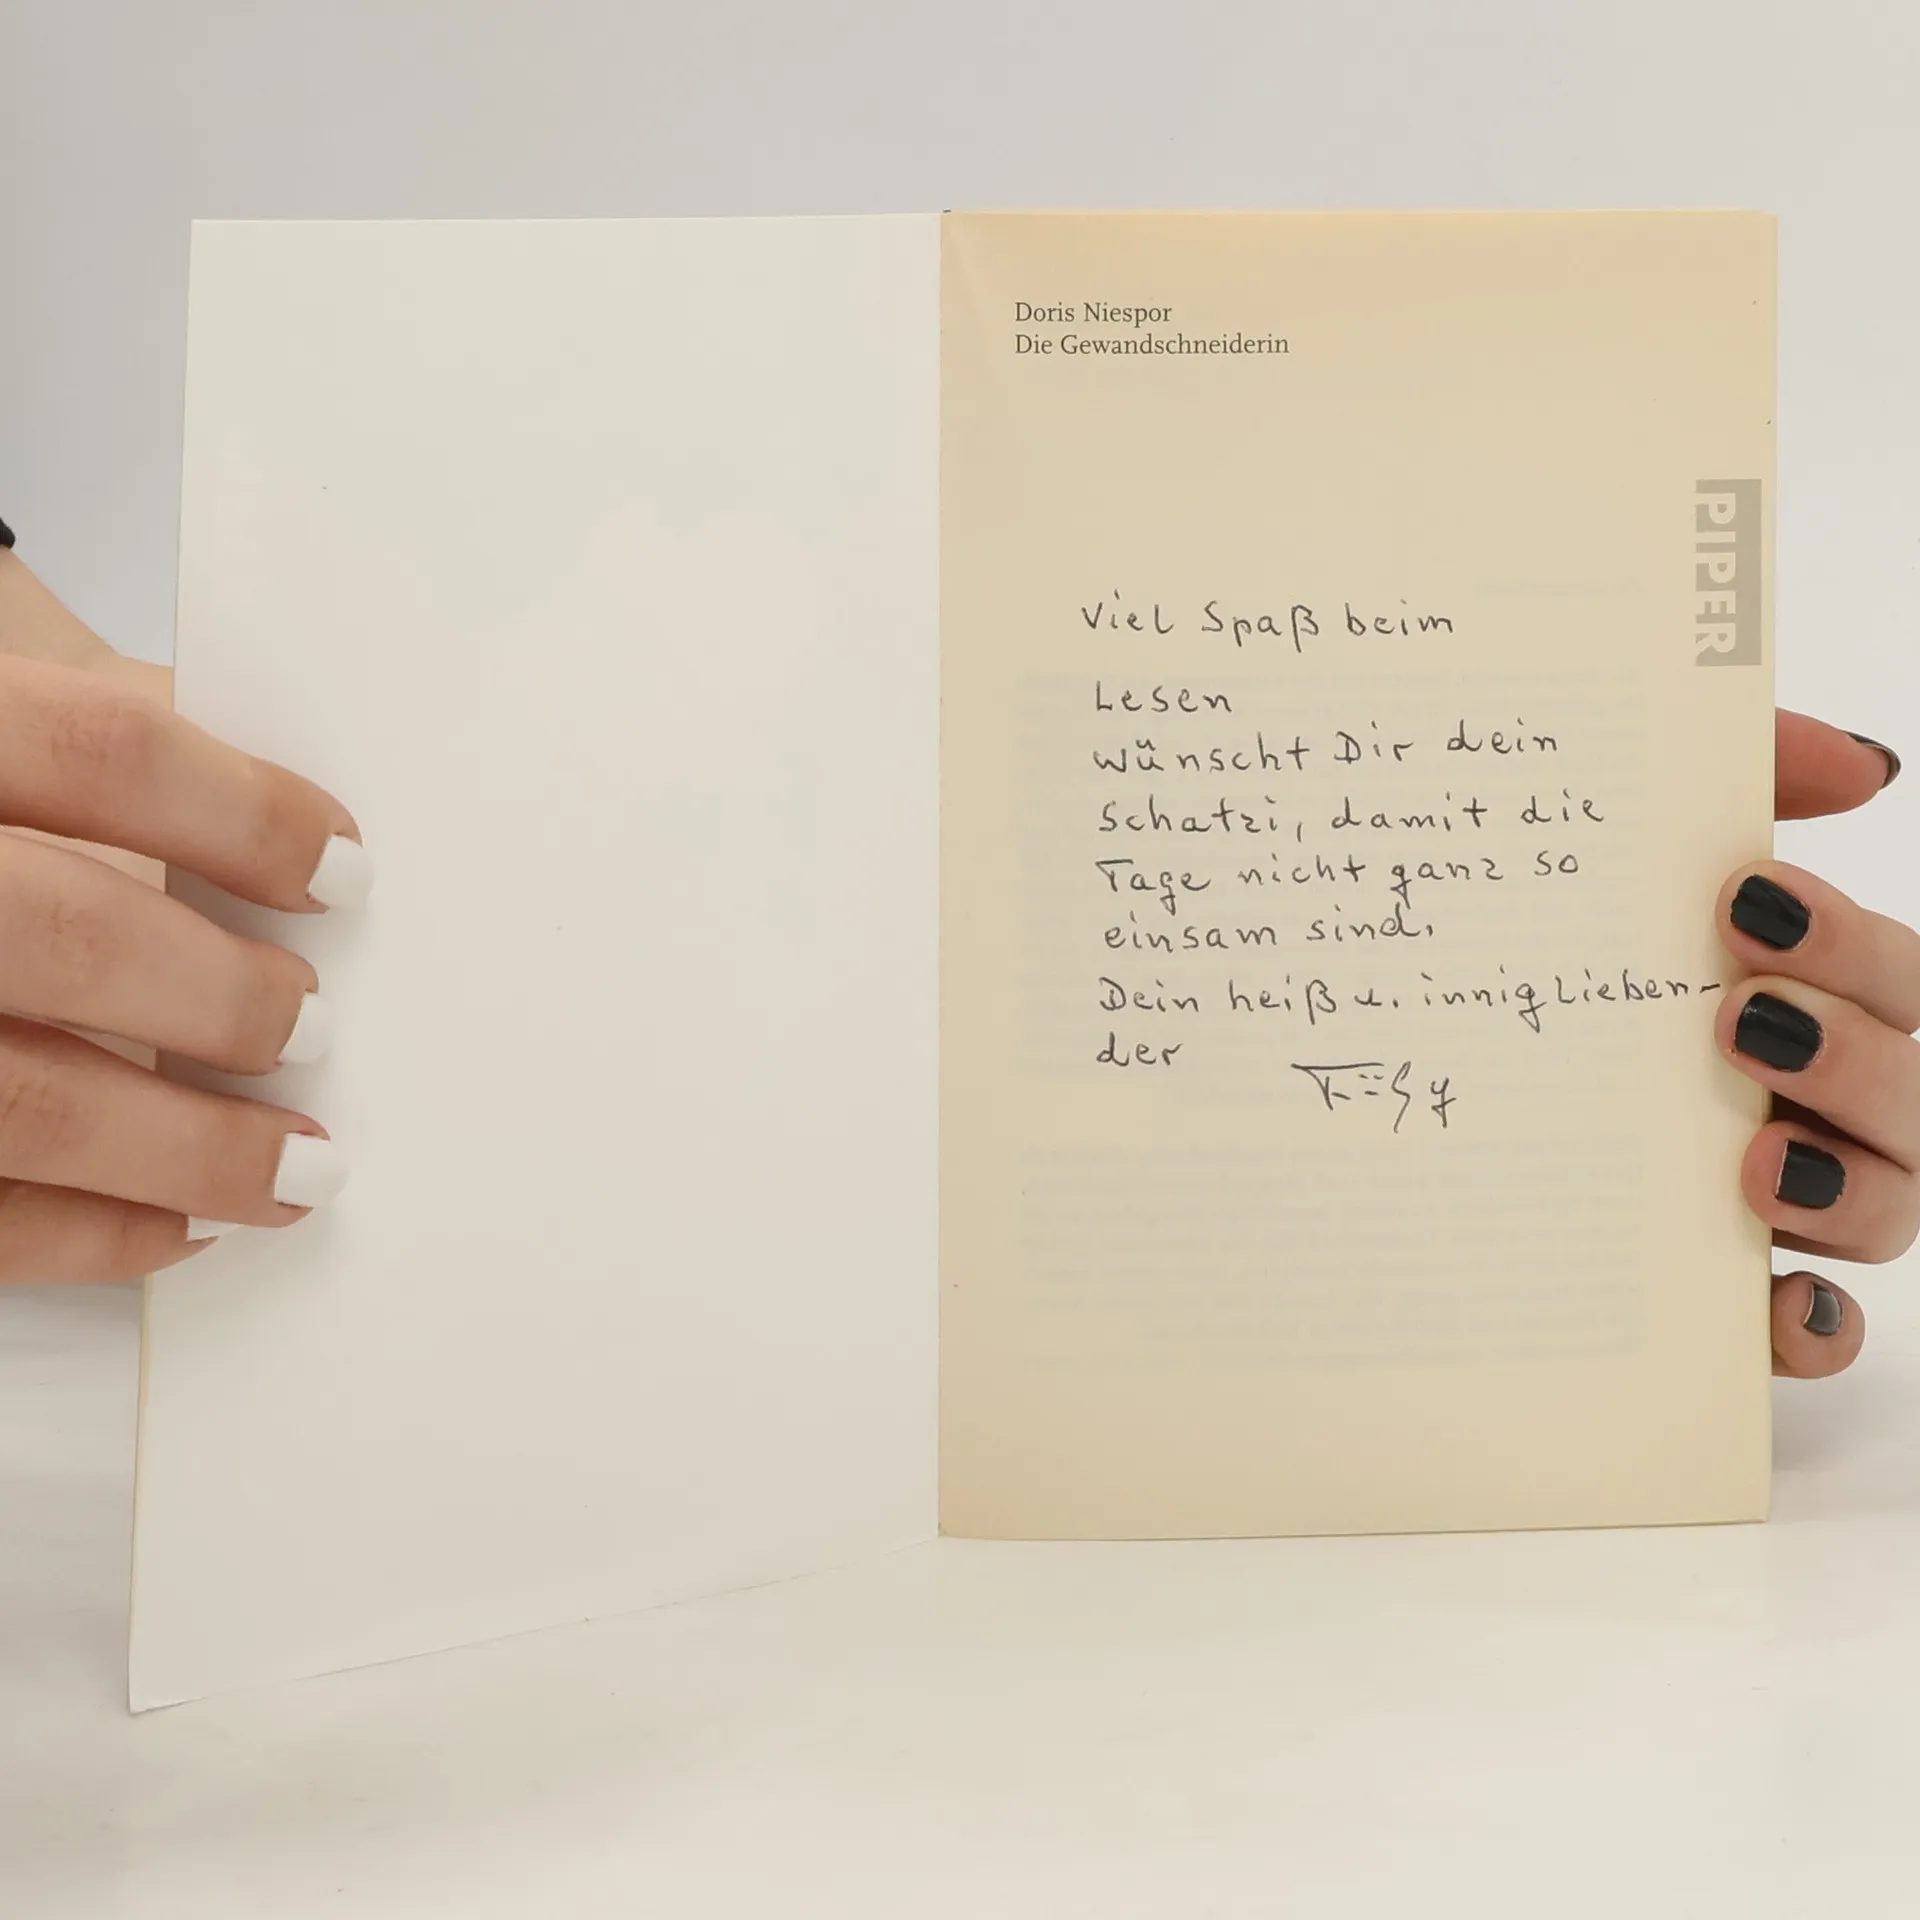 Doris Niespor
Die Gewandschneiderin
PIPER
Viel Spaß beim
Lesen
wünscht Dir dein
Schatzi, damit die
Tage nicht ganz so
einsam sind.
Dein heiß u. innig Lieben-
der